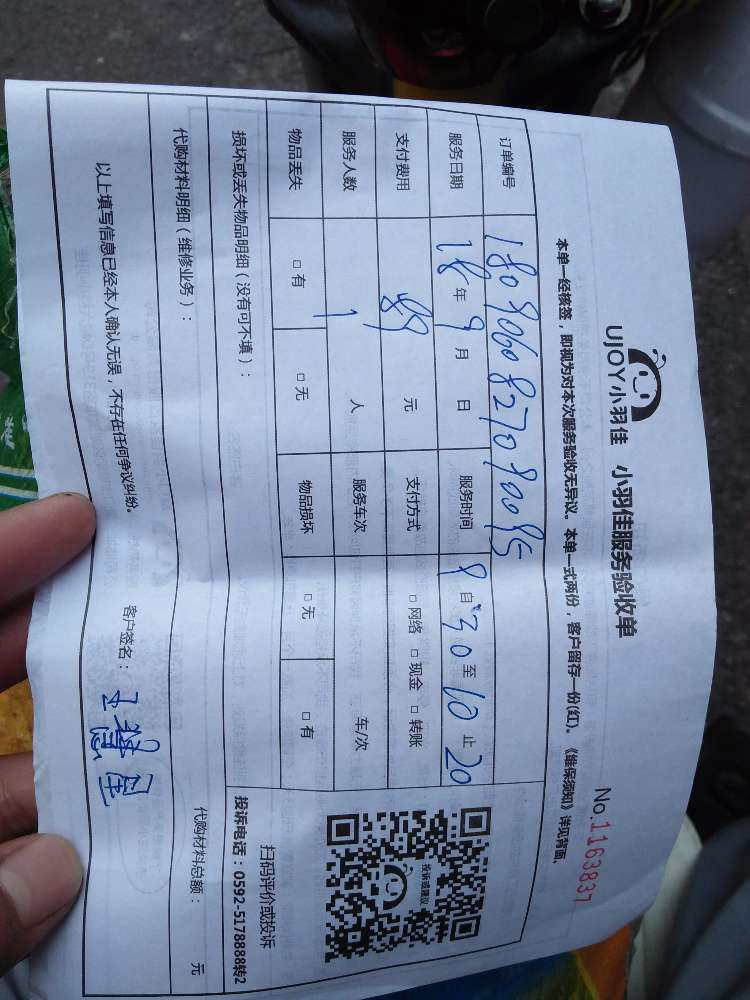 UJOY小羽佳 小羽佳服务验收单
No.1163837
本单一经核签，即视为对本次服务验收无异议。本单一式两份，客户留存一份(红)。《维保须知》详见背面。
订单编号 180906082709005
服务日期 18年9月 日 服务时间 8自30至10止20
支付费用 元 支付方式 □网络 □现金 □转账
服务人数 1 人 服务车次 车/次
物品丢失 □有 □无 物品损坏 □无 □有
损坏或丢失物品明细（没有可不填）：
投诉或建议
扫码评价或投诉
投诉电话：0592-5178888转2
代购材料明细（维修业务）：
代购材料总额： 元
以上填写信息已经本人确认无误，不存在任何争议纠纷。 客户签名：